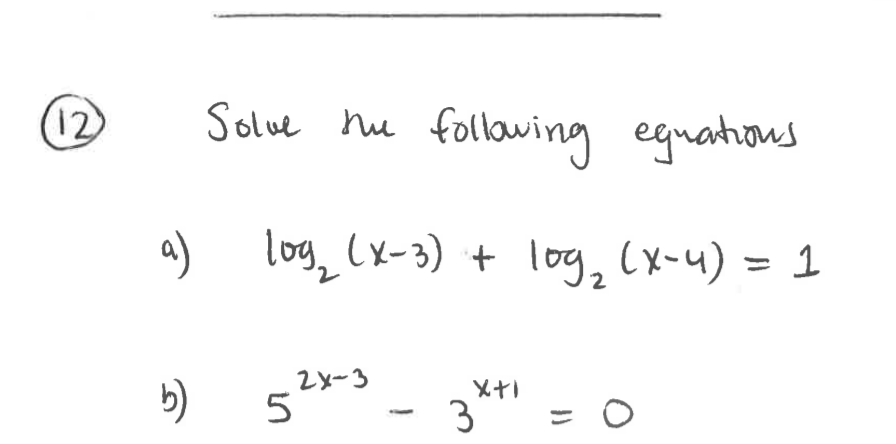 12 Solve the following equations
a) log₂ (x-3) + log₂ (x-4) = 1
b) 5^{2x-3} - 3^{x+1} = 0